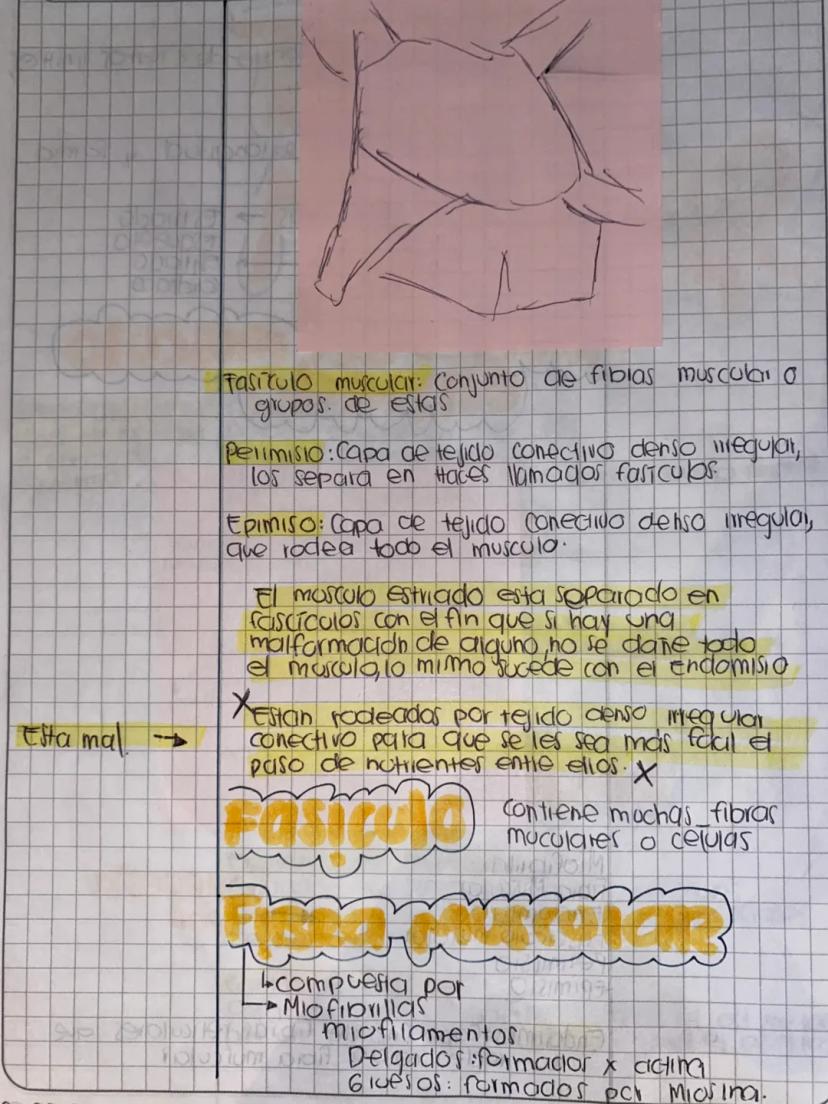 Fasículo muscular: Conjunto de fibras muscular o
grupos. de estas
Perimisio: Capa de tejido conectivo denso irregular,
los separa en Haces llamados fasículos.
Epimiso: Capa de tejido conectivo denso irregular,
que rodea todo el musculo.
El musculo estriado esta separado en
fascículos con el fin que si hay una
malformación de alguno, no se dañe todo
el musculo, lo mismo sucede con el Endomisio
X Estan rodeados por tejido denso irregular
Esta mal → conectivo para que se les sea más fácil el
paso de nutrientes entre ellos. X
Fasiculo
contiene muchas fibras
muculares o celulas
Fibra muscular
↳ compuesta por
→ Miofibrillas
miofilamentos
Delgados: formador x actina
Gruesos: formados por Miosina.